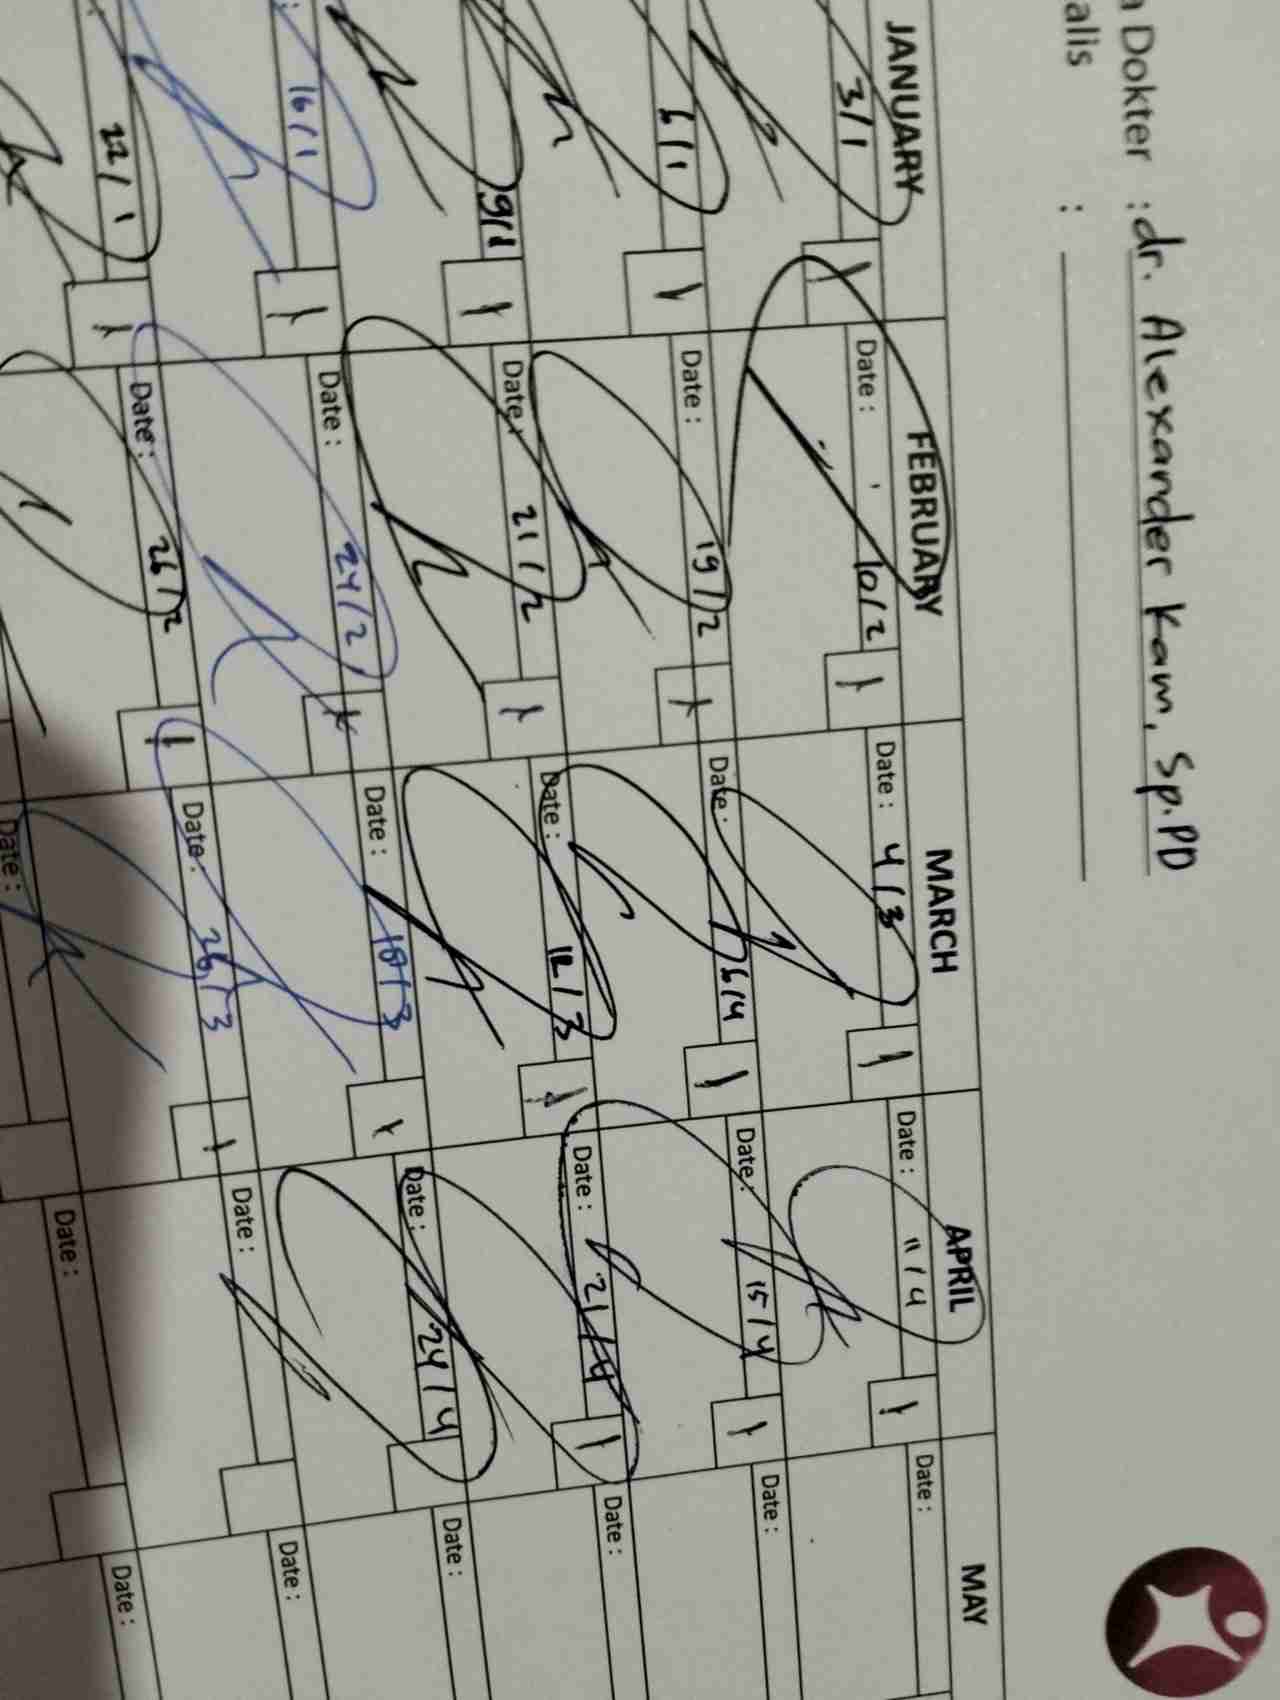 a Dokter : dr. Alexander Kam, Sp.PD
alis :
JANUARY FEBRUARY MARCH APRIL MAY
3/1 1 Date : 10/2 1 Date : 4/3 1 Date : 11/4 1 Date :
6/1 1 Date : 19/2 1 Date : 6/4 1 Date : 15/4 1 Date :
9/1 1 Date : 21/2 1 Date : 12/3 1 Date : 21/4 1 Date :
16/1 1 Date : 24/2 1 Date : 18/3 1 Date : 24/4 Date :
22/1 1 Date : 26/2 1 Date : 26/3 1 Date : Date :
Date : Date : Date :